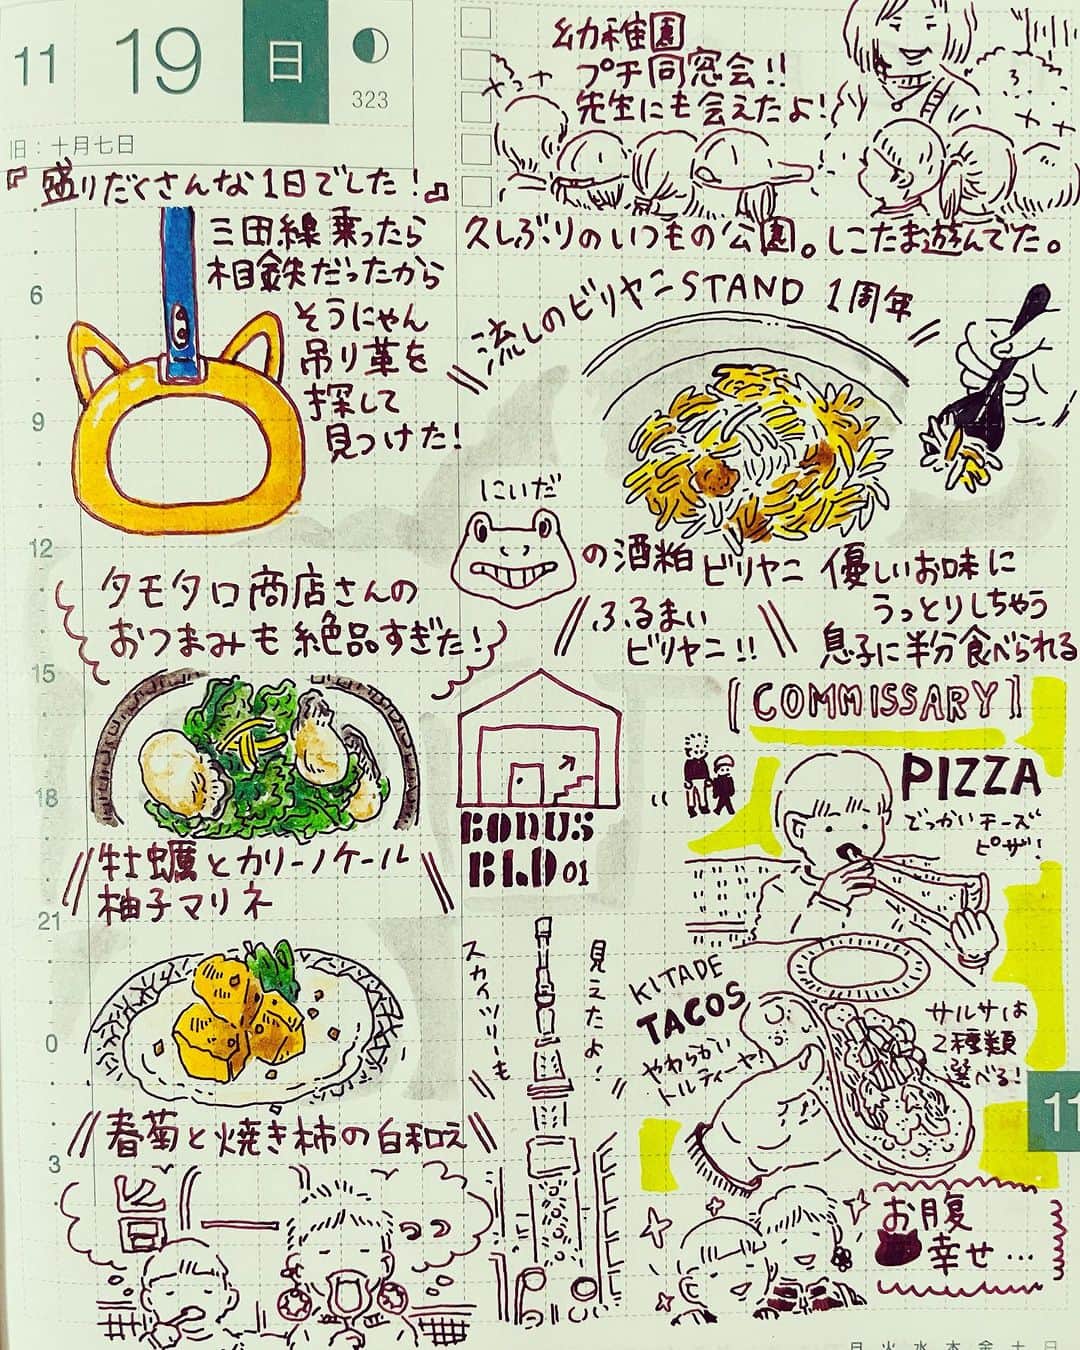 11 19 日
323
旧：十月七日
幼稚園
プチ同窓会!!
先生にも会えたよ!
『盛りだくさんな1日でした!』
三田線乗ったら
相鉄だったから
そうにゃん
吊り革を
探して
見つけた!
久しぶりのいつもの公園。しこたま遊んでた。
流しのビリヤニSTAND 1周年
6
9
12
15
18
21
0
3
にいだ
の酒粕ビリヤニ
ふるまい
ビリヤニ!!
優しいお味に
うっとりしちゃう
息子に半分食べられる
タモタロ商店さんの
おつまみも絶品すぎた!
牡蠣とカリーノケール
柚子マリネ
春菊と焼き柿の白和え
BONUS
BLD 01
スカイツリーも
見えたよ!
[COMMISSARY]
PIZZA
でっかいチーズ
ピザ!
KITADE
TACOS
やわらかい
トルティーヤ!
サルサは
2種類
選べる!
お腹
幸せ…
11
月 火 水 木 金 土 日